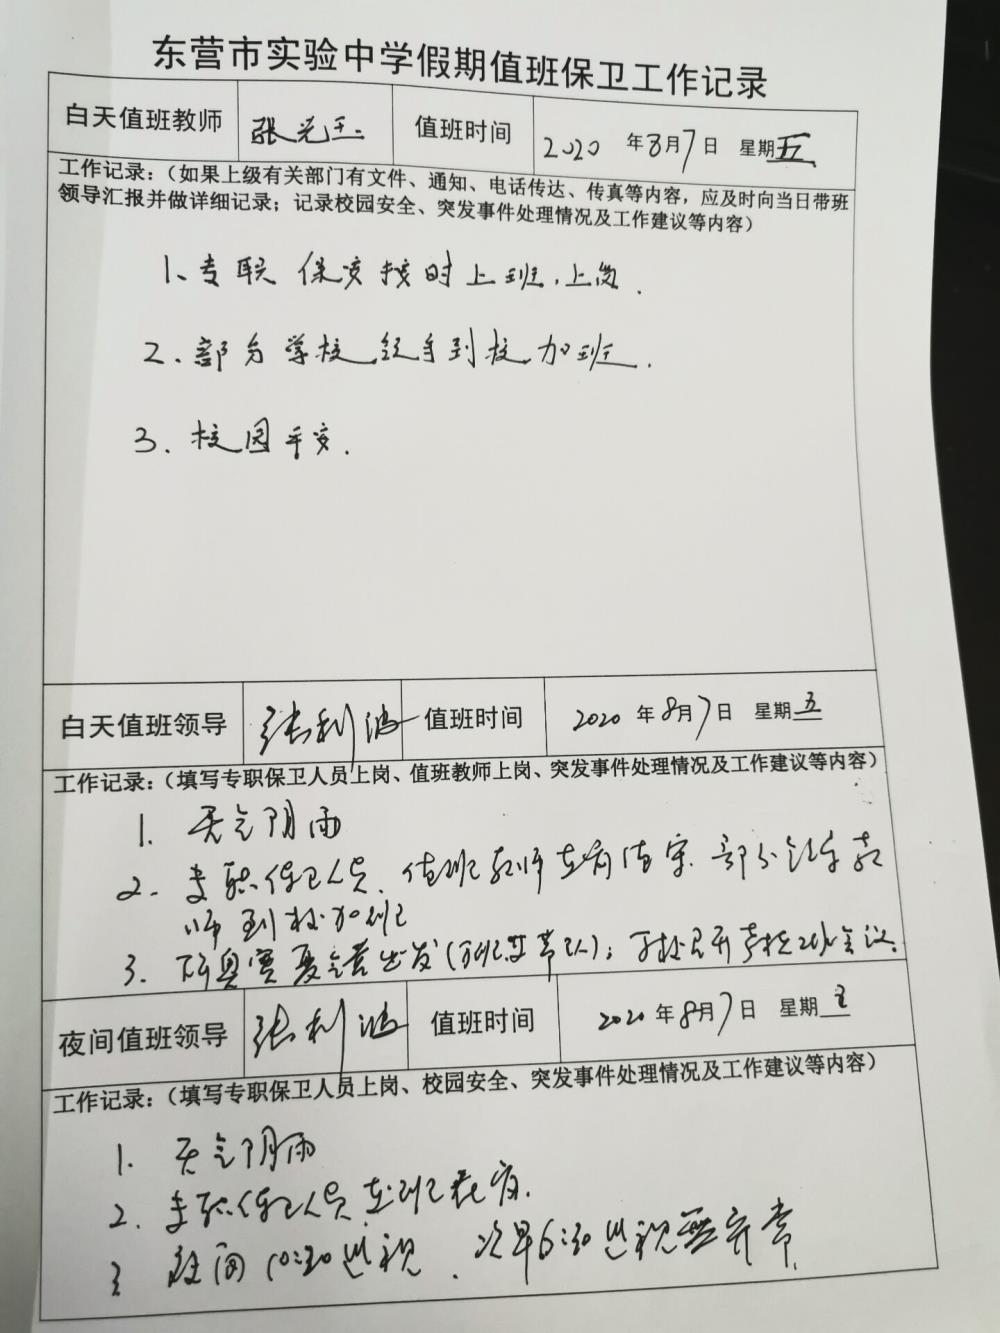 东营市实验中学假期值班保卫工作记录
白天值班教师 张光玉 值班时间 2020 年8月7日 星期五
工作记录：（如果上级有关部门有文件、通知、电话传达、传真等内容，应及时向当日带班
领导汇报并做详细记录；记录校园安全、突发事件处理情况及工作建议等内容）
1、专职保安按时上班，上岗.
2、部分学校领导到校加班.
3、校园平安.
白天值班领导 张利波 值班时间 2020 年8月7日 星期五
工作记录：（填写专职保卫人员上岗、值班教师上岗、突发事件处理情况及工作建议等内容）
1. 天气阴雨
2. 专职保卫人员、值班教师在岗值守. 部分
师到校加班
3. 奥赛夏令营出发
夜间值班领导 张利波 值班时间 2020 年8月7日 星期五
工作记录：（填写专职保卫人员上岗、校园安全、突发事件处理情况及工作建议等内容）
1. 天气阴雨
2. 专职保卫人员在班在岗.
3 夜间10:30巡视. 次早6:30巡视无异常.